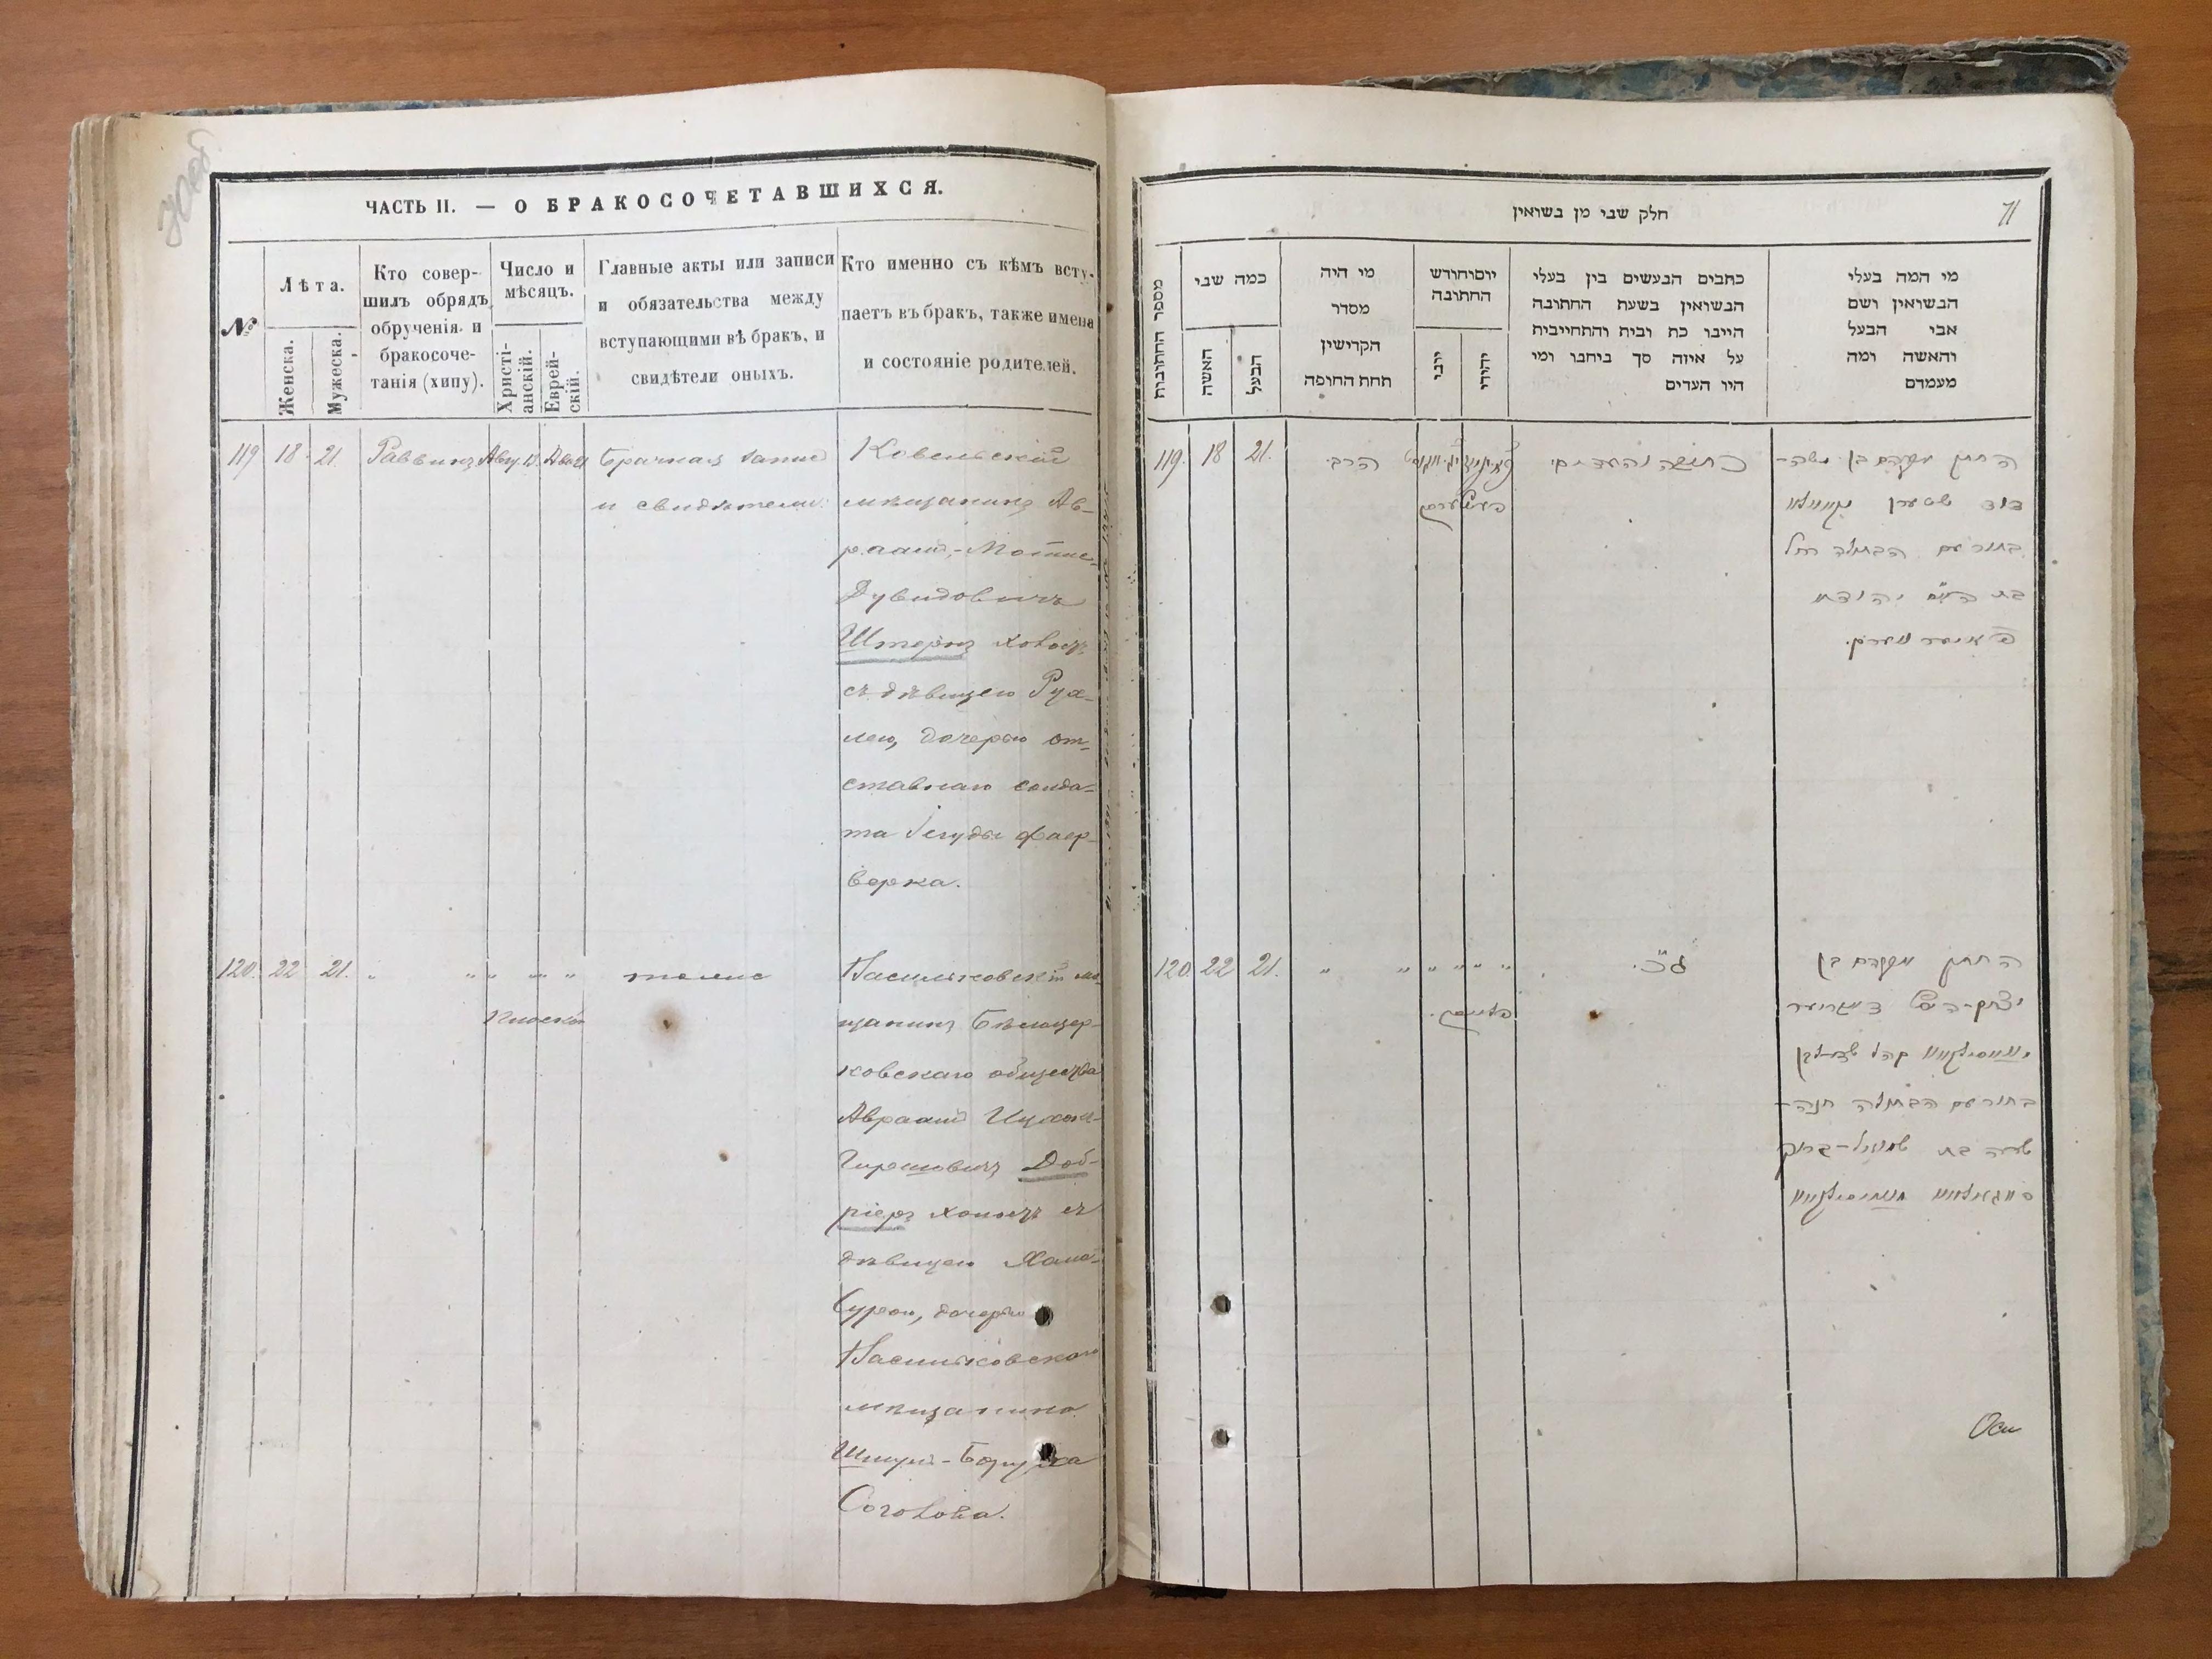 ЧАСТЬ II. — О БРАКОСОЧЕТАВШИХСЯ.
№
Лѣта.
Женска.
Мужеска.
Кто совер-
шилъ обрядъ
обрученія и
бракосоче-
танія (хипу).
Число и
мѣсяцъ.
Христі-
анскій.
Еврей-
скій.
Главные акты или записи
и обязательства между
вступающими въ бракъ, и
свидѣтели оныхъ.
Кто именно съ кѣмъ всту-
паетъ въ бракъ, также имена
и состояніе родителей.
119 18 21. Раввинъ Авг. 13.
Брачная запись
и свидѣтели.
Ковельскій
мѣщанинъ Ав-
раамъ-
Дувидовичъ
Штернъ холостъ
съ дѣвицею Рух-
лею, дочерью от-
ставнаго солда-
та Іегуды Фаер-
верка.
120. 22 21. " " " " "
тоже
Васильковскій мѣ-
щанинъ Бѣлоцер-
ковскаго общества
Авраамъ Ицхокъ-
Гиршовичъ Доб-
ріеръ холостъ съ
дѣвицею Хана-
Сурою, дочерью
Васильковскаго
мѣщанина
Шмуля-Боруха
71
חלק שני מן נשואין
מספר החתונות
כמה שני
האשה
הבעל
מי היה
מסדר
הקדושין
תחת החופה
יום וחודש
החתונה
יוני
יהודי
כתבים הנעשים בין בעלי
הנשואין בשעת החתונה
היינו כת ובית והתחייבות
על איזה סך ביחבו ומי
היו העדים
מי המה בעלי
הנשואין ושם
אבי הבעל
והאשה ומה
מעמדם
119. 18 21.
הרב.
החתן אברהם בן משה-
דוד שטערן
בחור עם הבתולה רחל
בת
120. 22 21. " " " " "
ג"כ.
החתן אברהם בן
יצחק-הירש
בחור עם הבתולה חנה-
שרה בת שמואל-ברוך